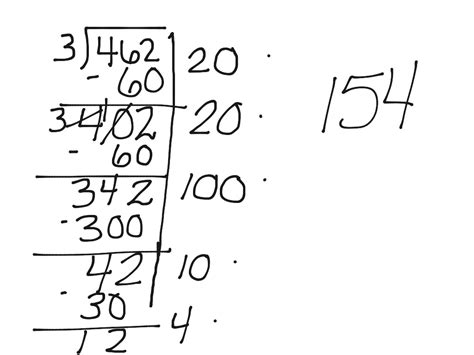 3)462 20 ·
- 60
3 4102 20 · 154
- 60
342 100 ·
- 300
42 10 ·
- 30
12 4 ·